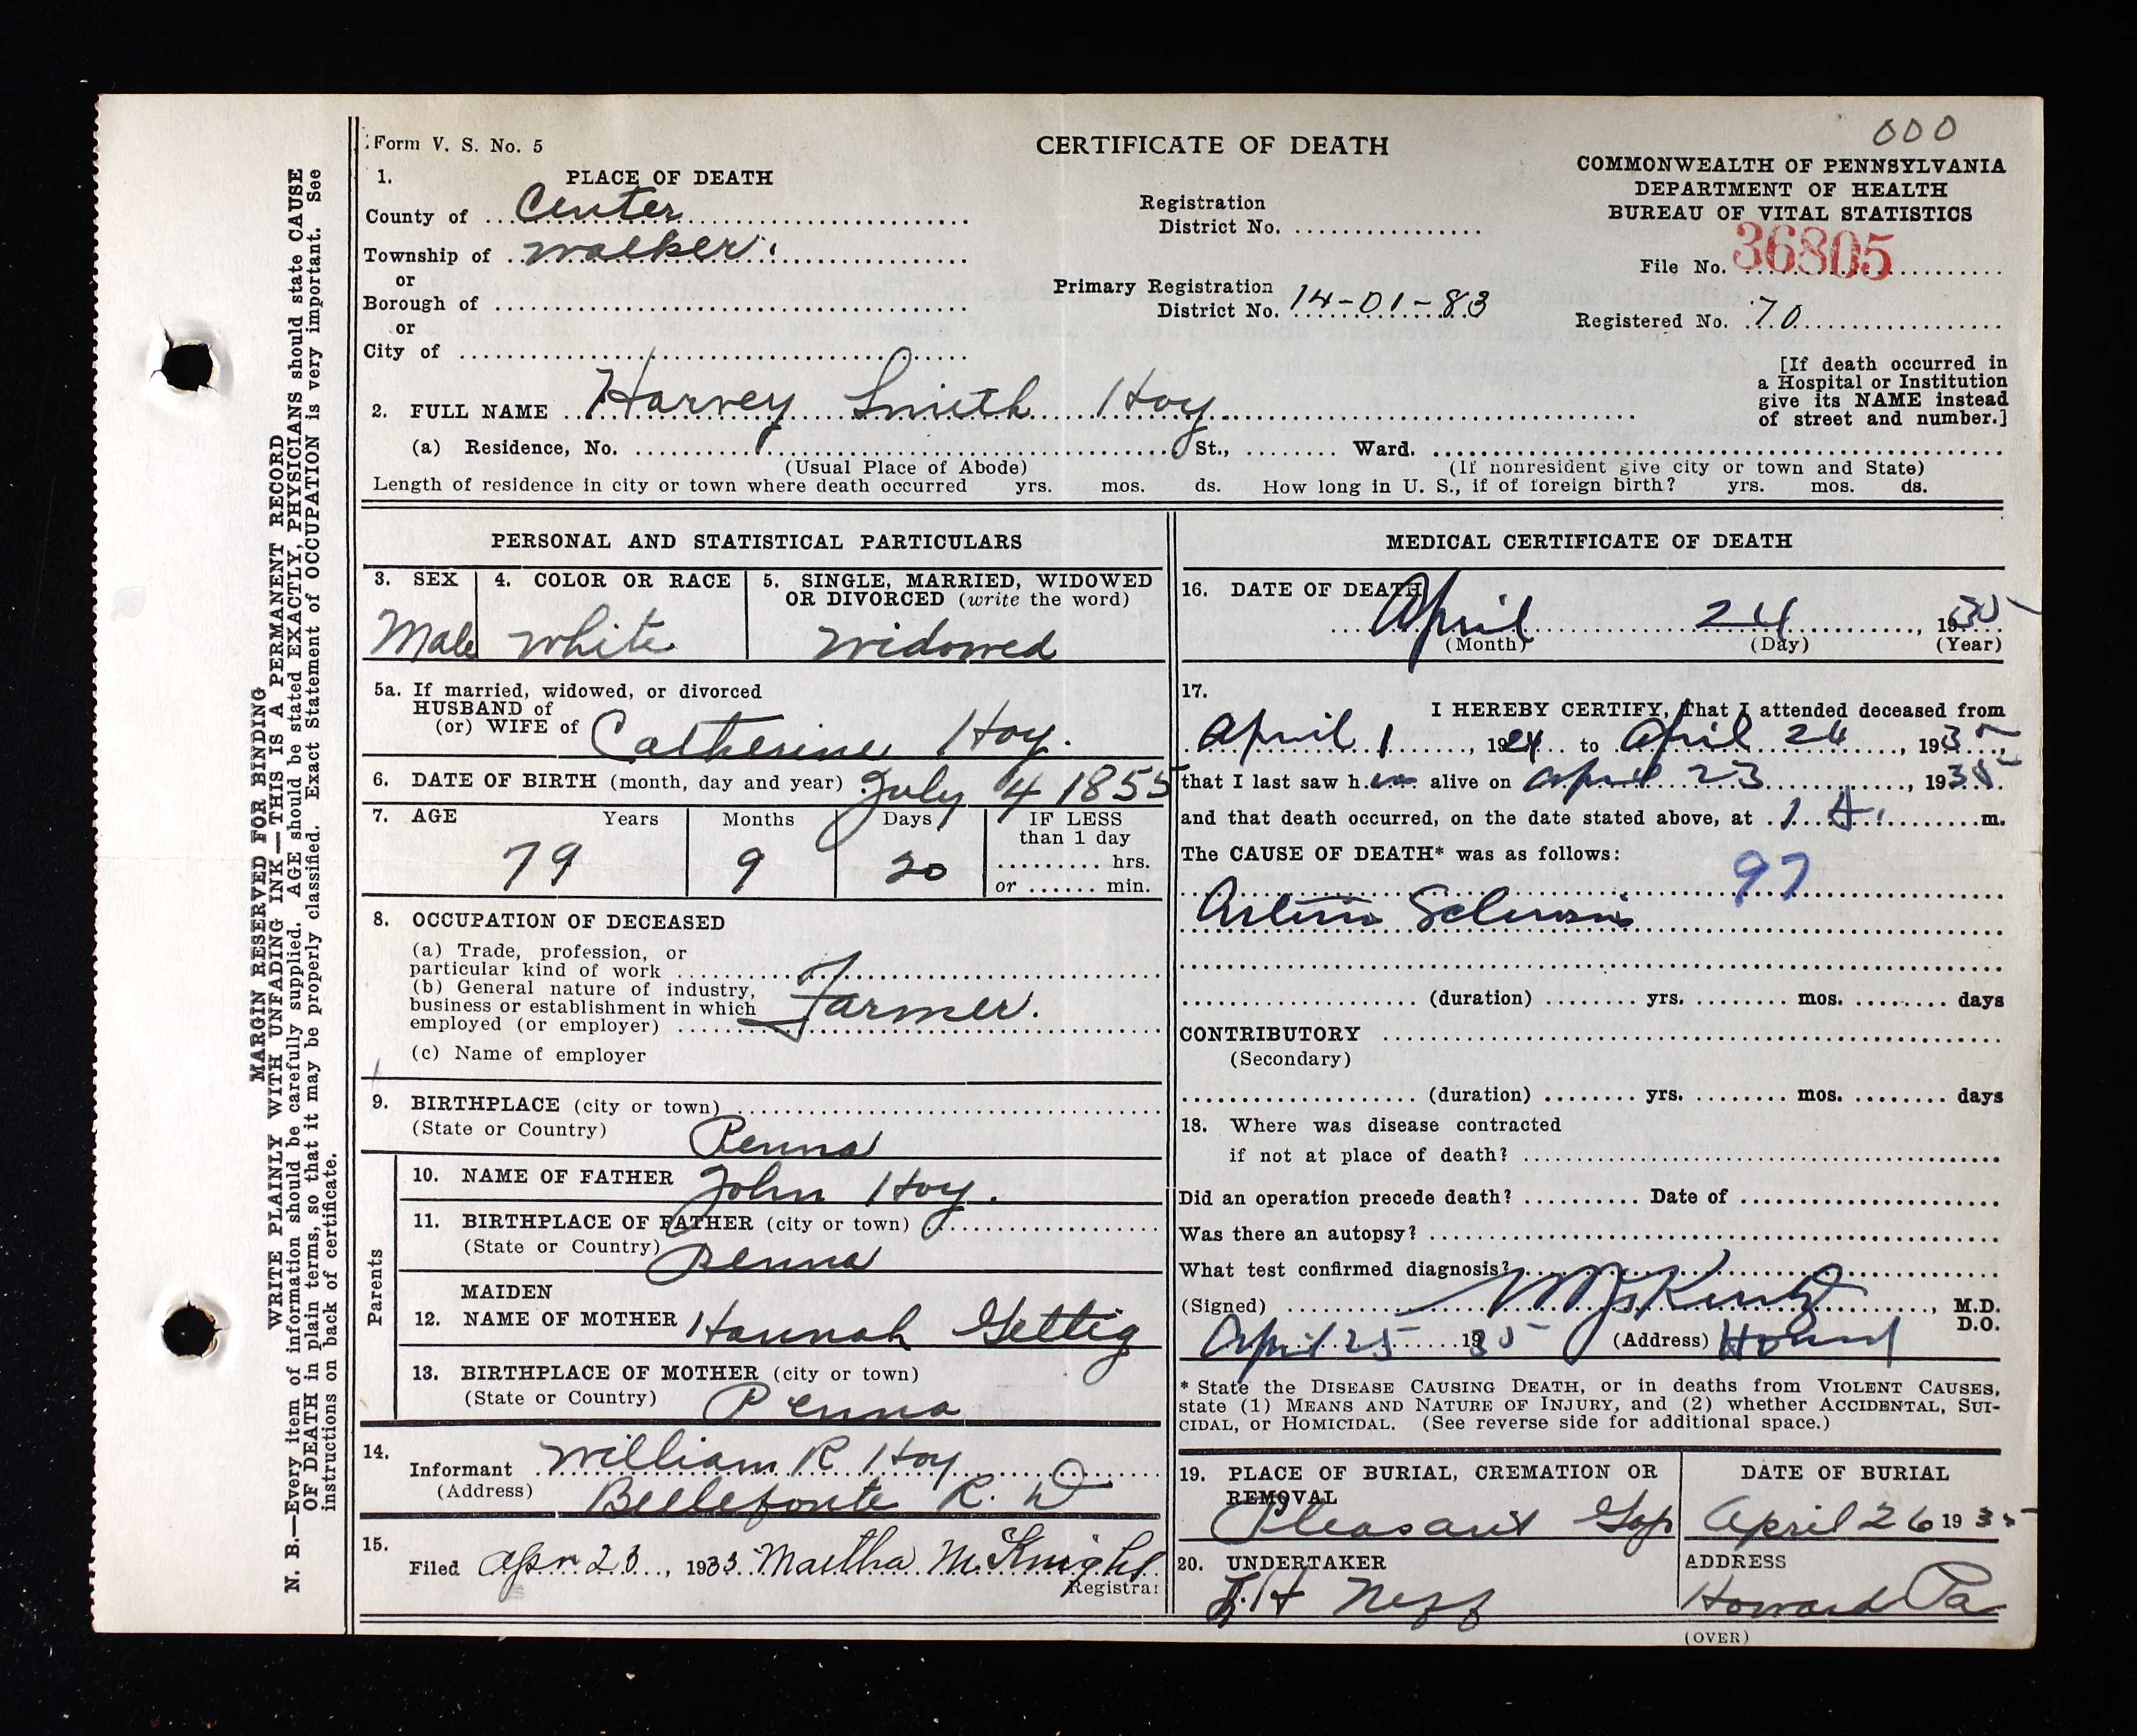 000
Form V. S. No. 5
CERTIFICATE OF DEATH
COMMONWEALTH OF PENNSYLVANIA
DEPARTMENT OF HEALTH
BUREAU OF VITAL STATISTICS
1. PLACE OF DEATH
County of Center
Township of Walker
or
Borough of
or
City of
Registration
District No.
Primary Registration
District No. 14-01-83
File No. 36805
Registered No. 70
[If death occurred in
a Hospital or Institution
give its NAME instead
of street and number.]
2. FULL NAME Harvey Smith Hoy
(a) Residence, No. St., Ward.
(Usual Place of Abode) (If nonresident give city or town and State)
Length of residence in city or town where death occurred yrs. mos. ds. How long in U. S., if of foreign birth? yrs. mos. ds.
PERSONAL AND STATISTICAL PARTICULARS
3. SEX
Male
4. COLOR OR RACE
White
5. SINGLE, MARRIED, WIDOWED
OR DIVORCED (write the word)
Widowed
5a. If married, widowed, or divorced
HUSBAND of
(or) WIFE of Catherine Hoy.
6. DATE OF BIRTH (month, day and year) July 4 1855
7. AGE Years Months Days IF LESS
than 1 day
79 9 20 hrs.
or min.
8. OCCUPATION OF DECEASED
(a) Trade, profession, or
particular kind of work
(b) General nature of industry,
business or establishment in which
employed (or employer) Farmer.
(c) Name of employer
9. BIRTHPLACE (city or town)
(State or Country) Penna
Parents
10. NAME OF FATHER John Hoy.
11. BIRTHPLACE OF FATHER (city or town)
(State or Country) Penna
MAIDEN
12. NAME OF MOTHER Hannah Gettig
13. BIRTHPLACE OF MOTHER (city or town)
(State or Country) Penna
14.
Informant William R Hoy
(Address) Bellefonte R. D
15.
Filed Apr 23, 1933 Martha McKnight
Registrar
MEDICAL CERTIFICATE OF DEATH
16. DATE OF DEATH
April 24, 1935
(Month) (Day) (Year)
17.
I HEREBY CERTIFY, That I attended deceased from
April 1, 19 to April 24, 1935,
that I last saw him alive on April 23, 1935.
and that death occurred, on the date stated above, at 1 A. m.
The CAUSE OF DEATH* was as follows:
97
Arterio Sclerosis
(duration) yrs. mos. days
CONTRIBUTORY
(Secondary)
(duration) yrs. mos. days
18. Where was disease contracted
if not at place of death?
Did an operation precede death? Date of
Was there an autopsy?
What test confirmed diagnosis?
(Signed) , M.D.
D.O.
April 25 1935 (Address) Howard
* State the DISEASE CAUSING DEATH, or in deaths from VIOLENT CAUSES,
state (1) MEANS AND NATURE OF INJURY, and (2) whether ACCIDENTAL, SUI-
CIDAL, or HOMICIDAL. (See reverse side for additional space.)
19. PLACE OF BURIAL, CREMATION OR
REMOVAL
Pleasant Gap
DATE OF BURIAL
April 26 1935
20. UNDERTAKER
Neff
ADDRESS
Howard Pa
(OVER)
MARGIN RESERVED FOR BINDING
WRITE PLAINLY WITH UNFADING INK—THIS IS A PERMANENT RECORD
N. B.—Every item of information should be carefully supplied. AGE should be stated EXACTLY, PHYSICIANS should state CAUSE
OF DEATH in plain terms, so that it may be properly classified. Exact Statement of OCCUPATION is very important. See
instructions on back of certificate.